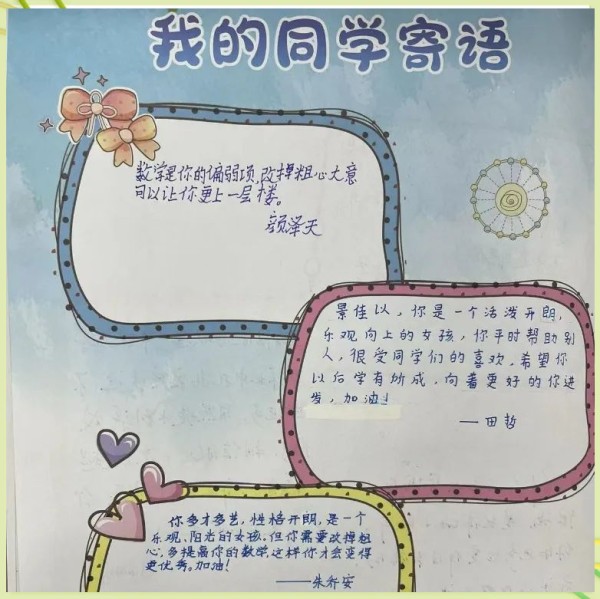 我的同学寄语
数学是你的偏弱项,改掉粗心大意
可以让你更上一层楼。
颜泽天
景佳以,你是一个活泼开朗,
乐观向上的女孩,你平时帮助别
人,很受同学们的喜欢,希望你
以后学有所成,向着更好的你进
发,加油!
——田哲
你多才多艺,性格开朗,是一个
乐观、阳光的女孩。但你需要改掉粗
心,多提高你的数学,这样你才会变得
更优秀。加油!
——朱行安